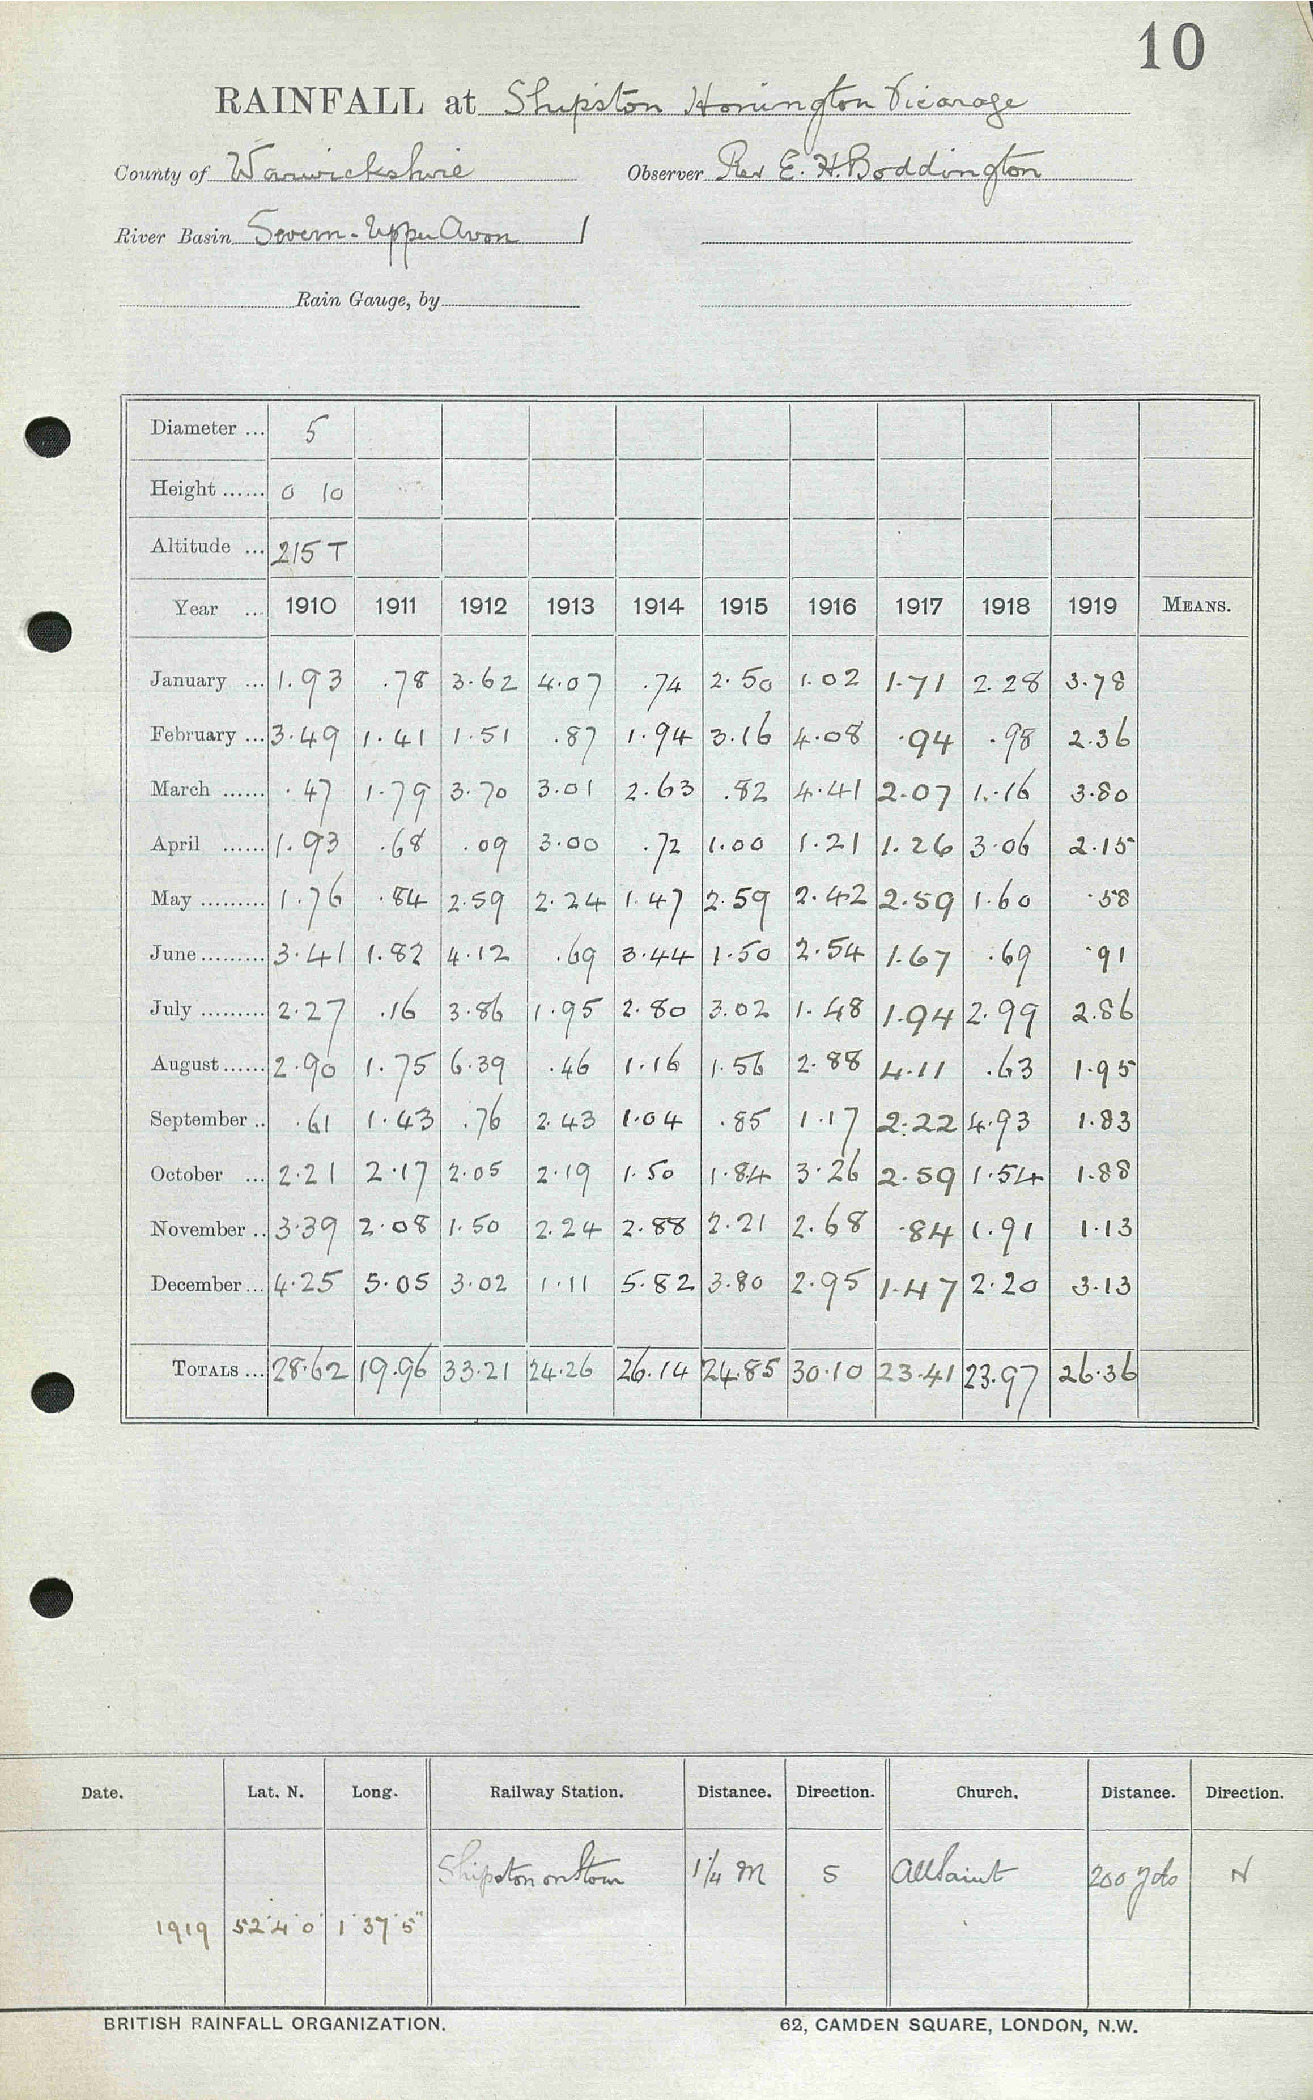 10
RAINFALL at Shipston Honington Vicarage
County of Warwickshire Observer Rev E. H. Boddington
River Basin Severn - Upper Avon 1
Rain Gauge, by
Diameter ... 5
Height ...... 0 10
Altitude ... 215 T
Year ... 1910 1911 1912 1913 1914 1915 1916 1917 1918 1919 MEANS.
January ... 1.93 .78 3.62 4.07 .74 2.50 1.02 1.71 2.28 3.78
February ... 3.49 1.41 1.51 .87 1.94 3.16 4.08 .94 .98 2.36
March ...... .47 1.79 3.70 3.01 2.63 .82 4.41 2.07 1.16 3.80
April ...... 1.93 .68 .09 3.00 .72 1.00 1.21 1.26 3.06 2.15
May ......... 1.76 .84 2.59 2.24 1.47 2.59 2.42 2.59 1.60 .58
June ......... 3.41 1.82 4.12 .69 3.44 1.50 2.54 1.67 .69 .91
July ......... 2.27 .16 3.86 1.95 2.80 3.02 1.48 1.94 2.99 2.86
August ...... 2.90 1.75 6.39 .46 1.16 1.56 2.88 4.11 .63 1.95
September .. .61 1.43 .76 2.43 1.04 .85 1.17 2.22 4.93 1.83
October ... 2.21 2.17 2.05 2.19 1.50 1.84 3.26 2.59 1.54 1.88
November .. 3.39 2.08 1.50 2.24 2.88 2.21 2.68 .84 1.91 1.13
December ... 4.25 5.05 3.02 1.11 5.82 3.80 2.95 1.47 2.20 3.13
TOTALS ... 28.62 19.96 33.21 24.26 26.14 24.85 30.10 23.41 23.97 26.36
Date. Lat. N. Long. Railway Station. Distance. Direction. Church. Distance. Direction.
Shipston on Stour 1¼ M S All Saint 200 yds N
1919 52° 4' 0" 1° 37' 5"
BRITISH RAINFALL ORGANIZATION. 62, CAMDEN SQUARE, LONDON, N.W.